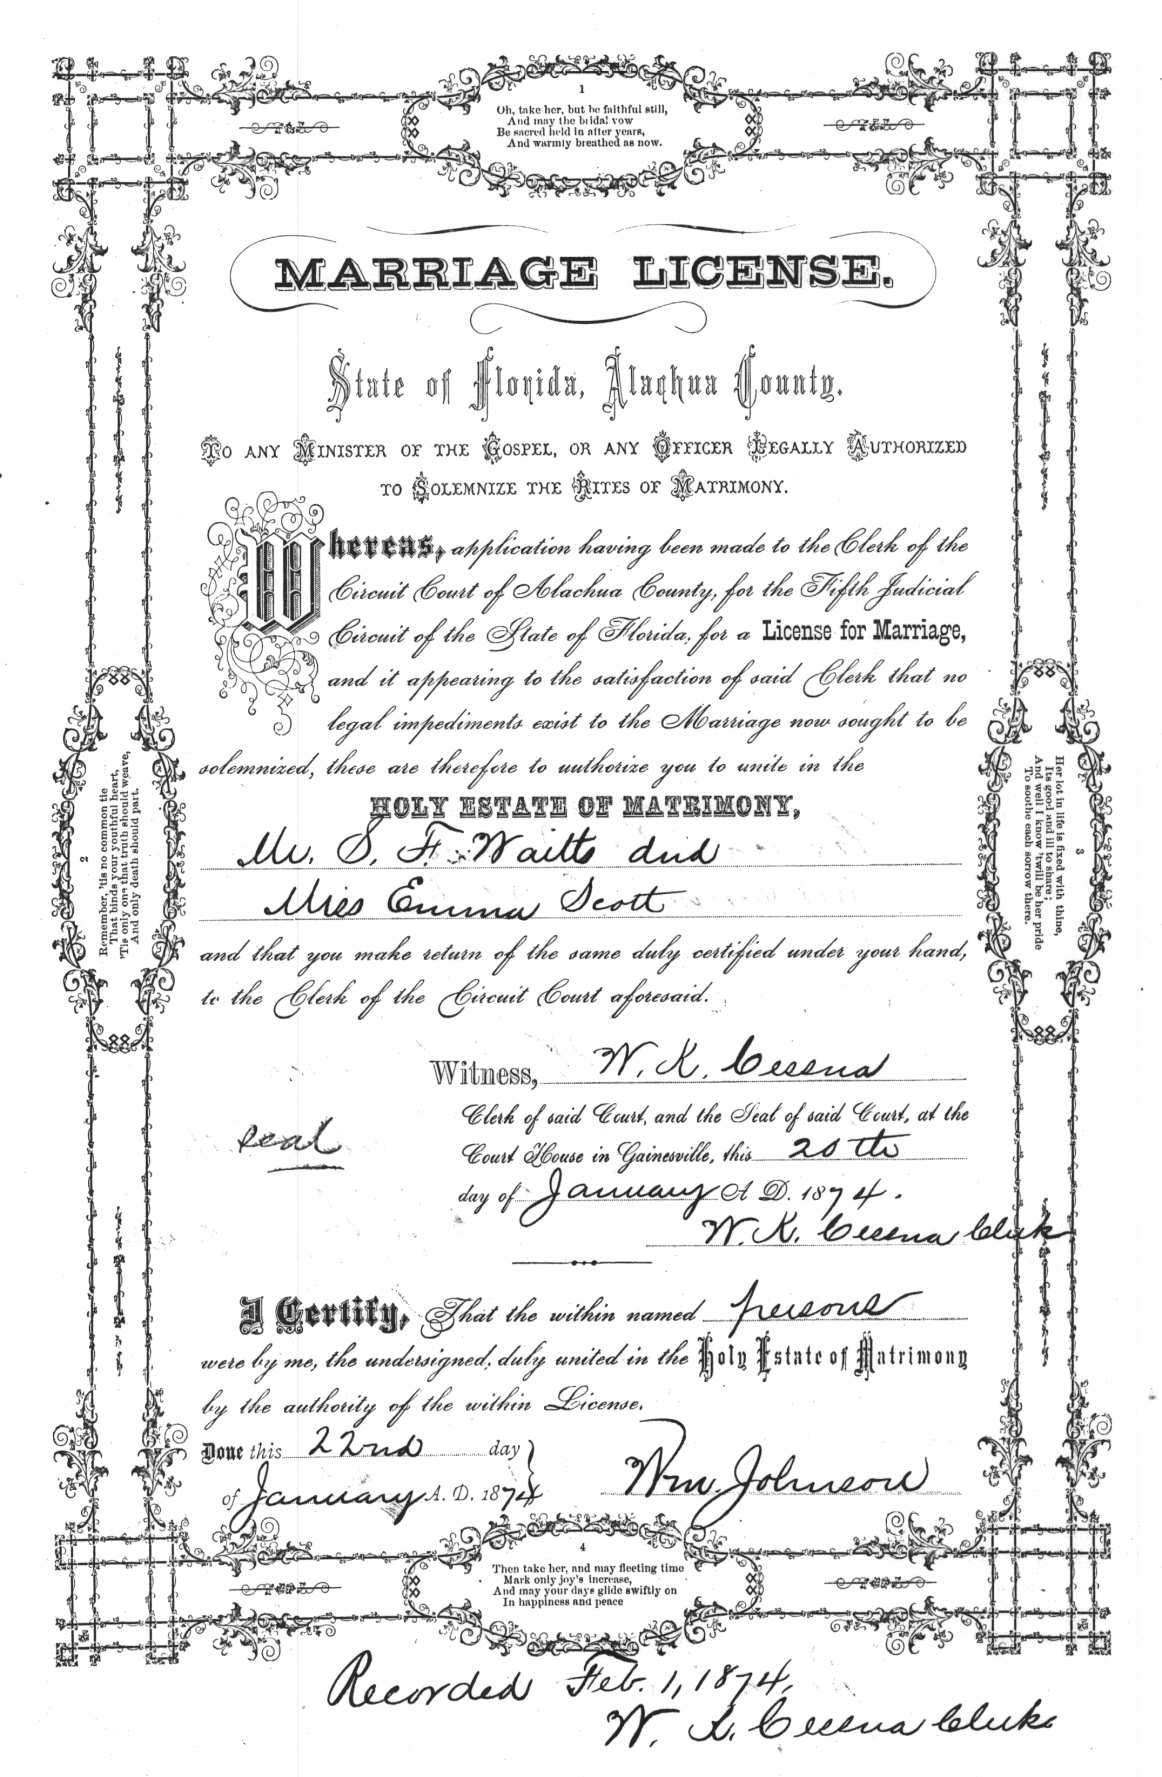 1
Oh, take her, but be faithful still,
And may the bridal vow
Be sacred held in after years,
And warmly breathed as now.
MARRIAGE LICENSE.
State of Florida, Alachua County.
TO ANY MINISTER OF THE GOSPEL, OR ANY OFFICER LEGALLY AUTHORIZED
TO SOLEMNIZE THE RITES OF MATRIMONY.
Whereas, application having been made to the Clerk of the
Circuit Court of Alachua County, for the Fifth Judicial
Circuit of the State of Florida, for a License for Marriage,
and it appearing to the satisfaction of said Clerk that no
legal impediments exist to the Marriage now sought to be
solemnized, these are therefore to authorize you to unite in the
HOLY ESTATE OF MATRIMONY,
Mr. S. F. Waitts and
Miss Emma Scott
and that you make return of the same duly certified under your hand,
to the Clerk of the Circuit Court aforesaid.
Witness, W. K. Cessna
Clerk of said Court, and the Seal of said Court, at the
seal
Court House in Gainesville, this 20th
day of January A. D. 1874.
W. K. Cessna Clerk
I Certify, That the within named persons
were by me, the undersigned, duly united in the Holy Estate of Matrimony
by the authority of the within License.
Done this 22nd day
of January A. D. 1874
Wm. Johnson
2
Remember, 'tis no common tie
That binds your youthful heart,
'Tis only one that truth should weave,
And only death should part.
3
Her lot in life is fixed with thine,
Its good and ill to share;
And well I know 'twill be her pride
To soothe each sorrow there.
4
Then take her, and may fleeting time
Mark only joy's increase,
And may your days glide swiftly on
In happiness and peace
Recorded Feb. 1, 1874,
W. K. Cessna Clerk